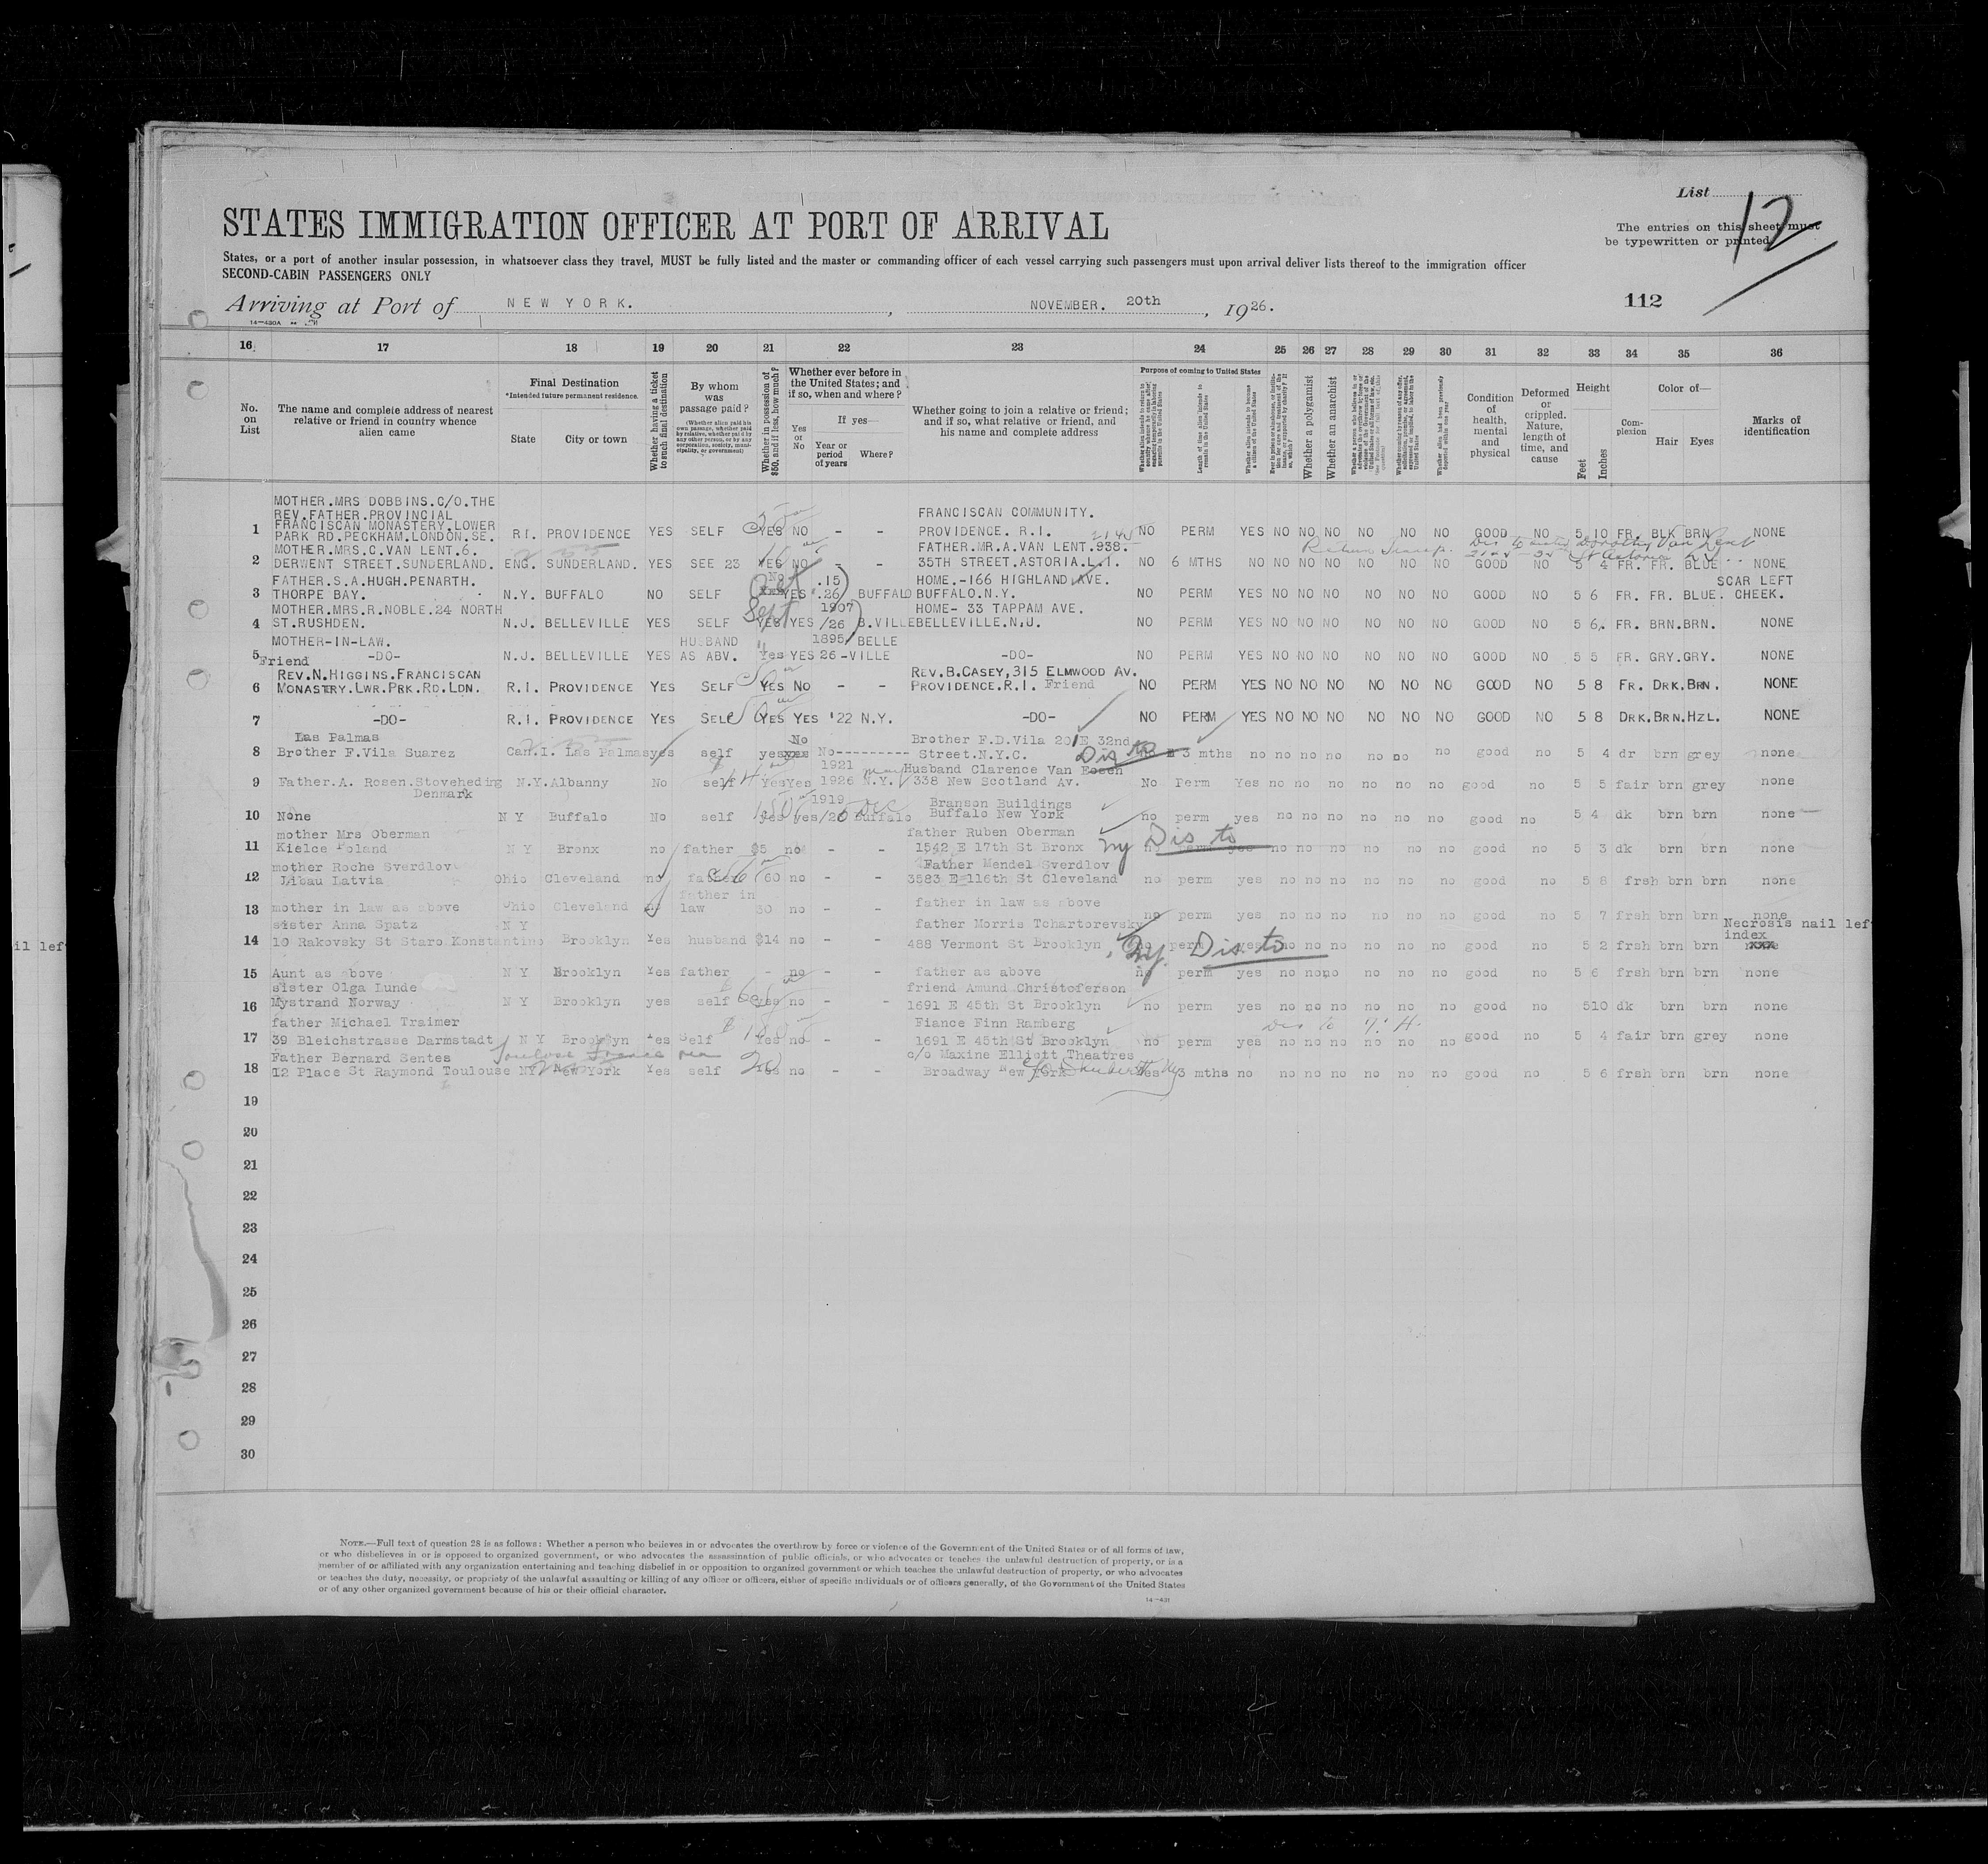 List
12
STATES IMMIGRATION OFFICER AT PORT OF ARRIVAL
The entries on this sheet must
be typewritten or printed
States, or a port of another insular possession, in whatsoever class they travel, MUST be fully listed and the master or commanding officer of each vessel carrying such passengers must upon arrival deliver lists thereof to the immigration officer
SECOND-CABIN PASSENGERS ONLY
Arriving at Port of NEW YORK. , NOVEMBER. 20th , 1926.
112
16 17 18 19 20 21 22 23 24 25 26 27 28 29 30 31 32 33 34 35 36
No. on List
The name and complete address of nearest relative or friend in country whence alien came
Final Destination
*Intended future permanent residence.
State City or town
Whether having a ticket to such final destination
By whom was passage paid?
(Whether alien paid his own passage, whether paid by relative, whether paid by any other person, or by any corporation, society, municipality, or government)
Whether in possession of $50, and if less, how much?
Whether ever before in the United States; and if so, when and where?
Yes or No
If yes—
Year or period of years Where?
Whether going to join a relative or friend; and if so, what relative or friend, and his name and complete address
Purpose of coming to United States
Length of time alien intends to remain in the United States
Whether alien intends to become a citizen of the United States
Whether a polygamist
Whether an anarchist
Condition of health, mental and physical
Deformed or crippled. Nature, length of time, and cause
Height
Feet Inches
Complexion
Color of—
Hair Eyes
Marks of identification
MOTHER.MRS DOBBINS.C/O.THE
REV.FATHER.PROVINCIAL FRANCISCAN COMMUNITY.
FRANCISCAN MONASTERY.LOWER
1 PARK RD.PECKHAM.LONDON.SE. RI. PROVIDENCE YES SELF YES NO - - PROVIDENCE. R.I. NO PERM YES NO NO NO NO NO NO GOOD NO 5 10 FR. BLK BRN NONE
MOTHER.MRS.C.VAN LENT.6. FATHER.MR.A.VAN LENT.938.
2 DERWENT STREET.SUNDERLAND. ENG. SUNDERLAND. YES SEE 23 YES NO - - 35TH STREET.ASTORIA.L.I. NO 6 MTHS NO NO NO NO NO NO NO GOOD NO 5 4 FR. FR. BLUE NONE
FATHER.S.A.HUGH.PENARTH. .15 HOME.-166 HIGHLAND AVE. SCAR LEFT
3 THORPE BAY. N.Y. BUFFALO NO SELF YES .26 BUFFALO BUFFALO.N.Y. NO PERM YES NO NO NO NO NO NO GOOD NO 5 6 FR. FR. BLUE. CHEEK.
MOTHER.MRS.R.NOBLE.24 NORTH 1907 HOME- 33 TAPPAM AVE.
4 ST.RUSHDEN. N.J. BELLEVILLE YES SELF YES YES /26 B.VILLE BELLEVILLE.N.J. NO PERM YES NO NO NO NO NO NO GOOD NO 5 6 FR. BRN.BRN. NONE
MOTHER-IN-LAW. HUSBAND 1895 BELLE
5 -DO- N.J. BELLEVILLE YES AS ABV. Yes YES 26 -VILLE -DO- NO PERM YES NO NO NO NO NO NO GOOD NO 5 5 FR. GRY.GRY. NONE
Friend
REV.N.HIGGINS.FRANCISCAN REV.B.CASEY,315 ELMWOOD AV.
6 MONASTERY.LWR.PRK.RD.LDN. R.I. PROVIDENCE YES SELF YES NO - - PROVIDENCE.R.I. Friend NO PERM YES NO NO NO NO NO NO GOOD NO 5 8 FR. DRK.BRN. NONE
7 -DO- R.I. PROVIDENCE YES SELF YES YES '22 N.Y. -DO- NO PERM YES NO NO NO NO NO NO GOOD NO 5 8 DRK.BRN.HZL. NONE
Las Palmas No Brother F.D.Vila 201 E 32nd
8 Brother F.Vila Suarez Can.I. Las Palmas yes self yes No--------- Street.N.Y.C. 3 mths no no no no no no no good no 5 4 dr brn grey none
1921 Husband Clarence Van Eosen
9 Father.A. Rosen.Stoveheding N.Y. Albanny No self Yes Yes 1926 N.Y. 338 New Scotland Av. No Perm Yes no no no no no no good no 5 5 fair brn grey none
Denmark
1919 Branson Buildings
10 None N Y Buffalo No self yes yes Buffalo Buffalo New York no perm yes no no no no no no good no 5 4 dk brn brn none
mother Mrs Oberman father Ruben Oberman Dis to
11 Kielce Poland N Y Bronx no father $5 no - - 1542 E 17th St Bronx perm yes no no no no no no good no 5 3 dk brn brn none
mother Roche Sverdlov Father Mendel Sverdlov
12 Libau Latvia Ohio Cleveland no father 60 no - - 3583 E 116th St Cleveland no perm yes no no no no no no good no 5 8 frsh brn brn none
father in father in law as above
13 mother in law as above Ohio Cleveland no law 30 no - - no perm yes no no no no no no good no 5 7 frsh brn brn none
sister Anna Spatz N Y father Morris Tchartorevsky Necrosis nail left
14 10 Rakovsky St Staro Konstantino Brooklyn Yes husband $14 no - - 488 Vermont St Brooklyn perm yes Dis to no no no no no no good no 5 2 frsh brn brn index
15 Aunt as above N Y Brooklyn Yes father - no - - father as above no perm yes no no no no no no good no 5 6 frsh brn brn none
sister Olga Lunde friend Amund Christoferson
16 Mystrand Norway N Y Brooklyn yes self Yes no - - 1691 E 45th St Brooklyn no perm yes no no no no no no good no 5 10 dk brn brn none
father Michael Traimer Fiance Finn Ramberg
17 39 Bleichstrasse Darmstadt N Y Brooklyn Yes Self Yes no - - 1691 E 45th St Brooklyn no perm yes no no no no no no good no 5 4 fair brn grey none
Father Bernard Sentes Toulouse France c/o Maxine Elliott Theatres
18 12 Place St Raymond Toulouse NY New York Yes self Yes no - - Broadway New York Yes 3 mths no no no no no no no good no 5 6 frsh brn brn none
19
20
21
22
23
24
25
26
27
28
29
30
NOTE.—Full text of question 28 is as follows: Whether a person who believes in or advocates the overthrow by force or violence of the Government of the United States or of all forms of law,
or who disbelieves in or is opposed to organized government, or who advocates the assassination of public officials, or who advocates or teaches the unlawful destruction of property, or is a
member of or affiliated with any organization entertaining and teaching disbelief in or opposition to organized government or which teaches the unlawful destruction of property, or who advocates
or teaches the duty, necessity, or propriety of the unlawful assaulting or killing of any officer or officers, either of specific individuals or of officers generally, of the Government of the United States
or of any other organized government because of his or their official character.
14—431